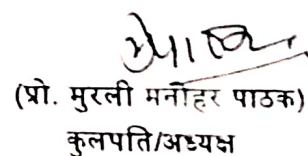 (प्रो. मुरली मनोहर पाठक)
कुलपति/अध्यक्ष